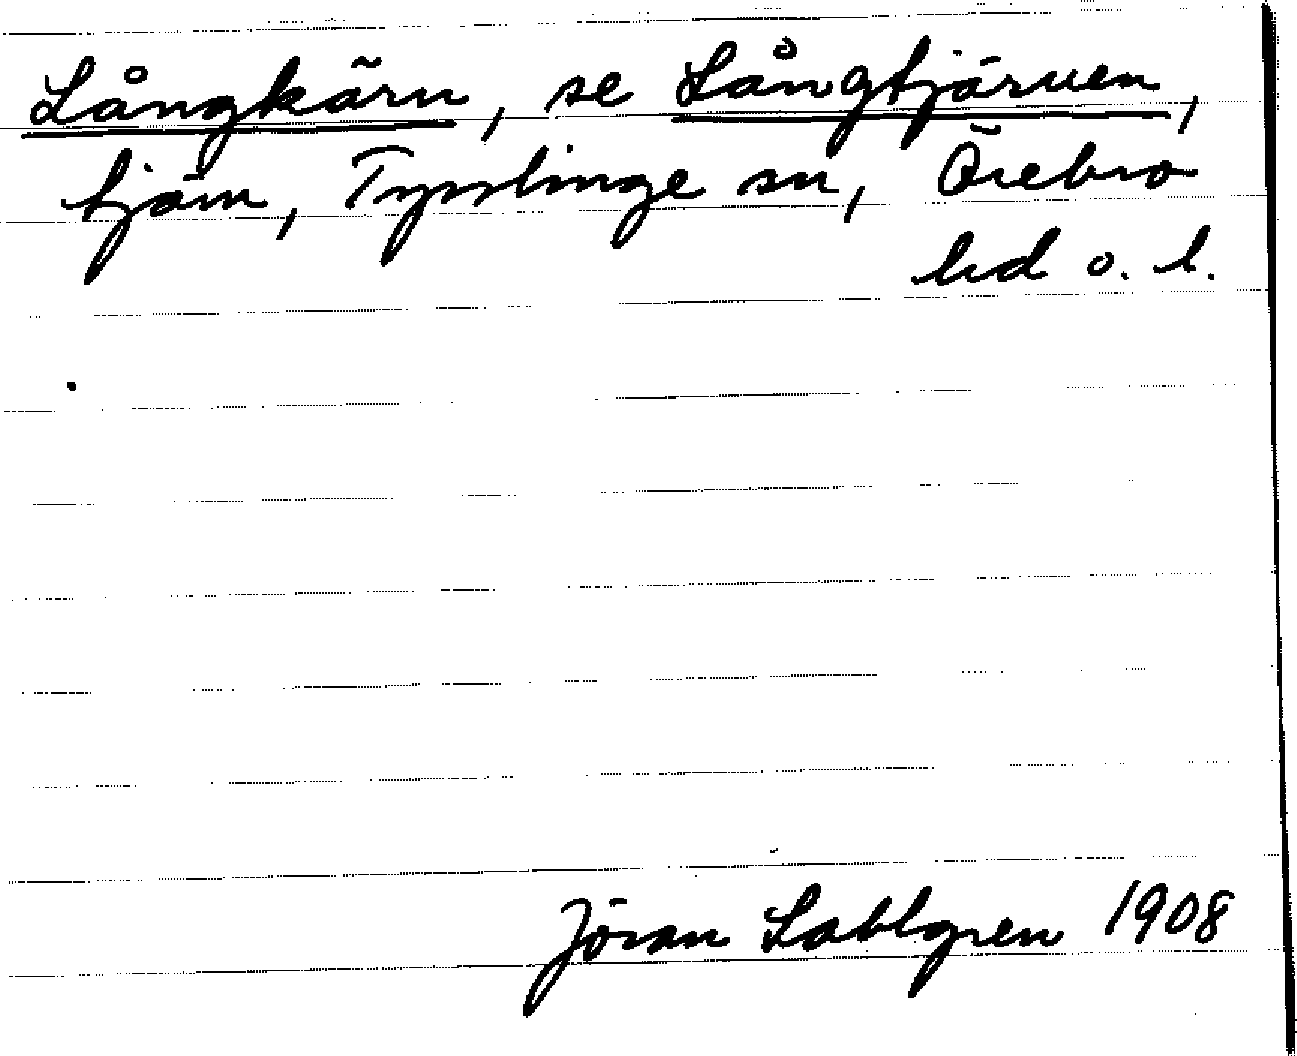 Långkärn, se Långtjärnen,
tjärn, Tysslinge sn, Örebro
hd o. l.
Jöran Sahlgren 1908